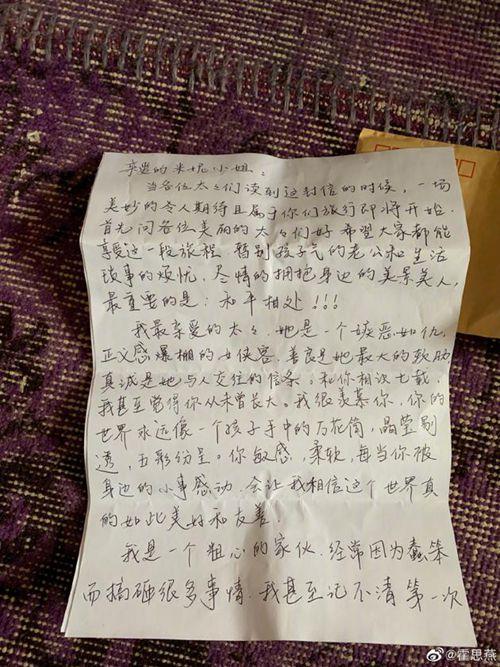 亲爱的米妮小姐：
当各位太太们读到这封信的时候，一场
美妙的令人期待且属于你们旅行即将开始.
首先问各位美丽的太太们好 希望大家都能
享受这一段旅程，暂别孩子气的老公和生活
琐事的烦忧，尽情的拥抱身边的美景美人，
最重要的是：和平相处！！！
我最亲爱的太太，她是一个嫉恶如仇，
正义感爆棚的女侠客，善良是她最大的
真诚是她与人交往的信条；和你相识七载，
我甚至觉得你从未曾长大。我很羡慕你，你的
世界永远像一个孩子手中的万花筒，晶莹剔
透，五彩纷呈。你敏感，柔软，每当你被
身边的小事感动，会让我相信这个世界真
的如此美好和友善！
我是一个粗心的家伙，经常因为蠢笨
而搞砸很多事情，我甚至记不清第一次
@霍思燕